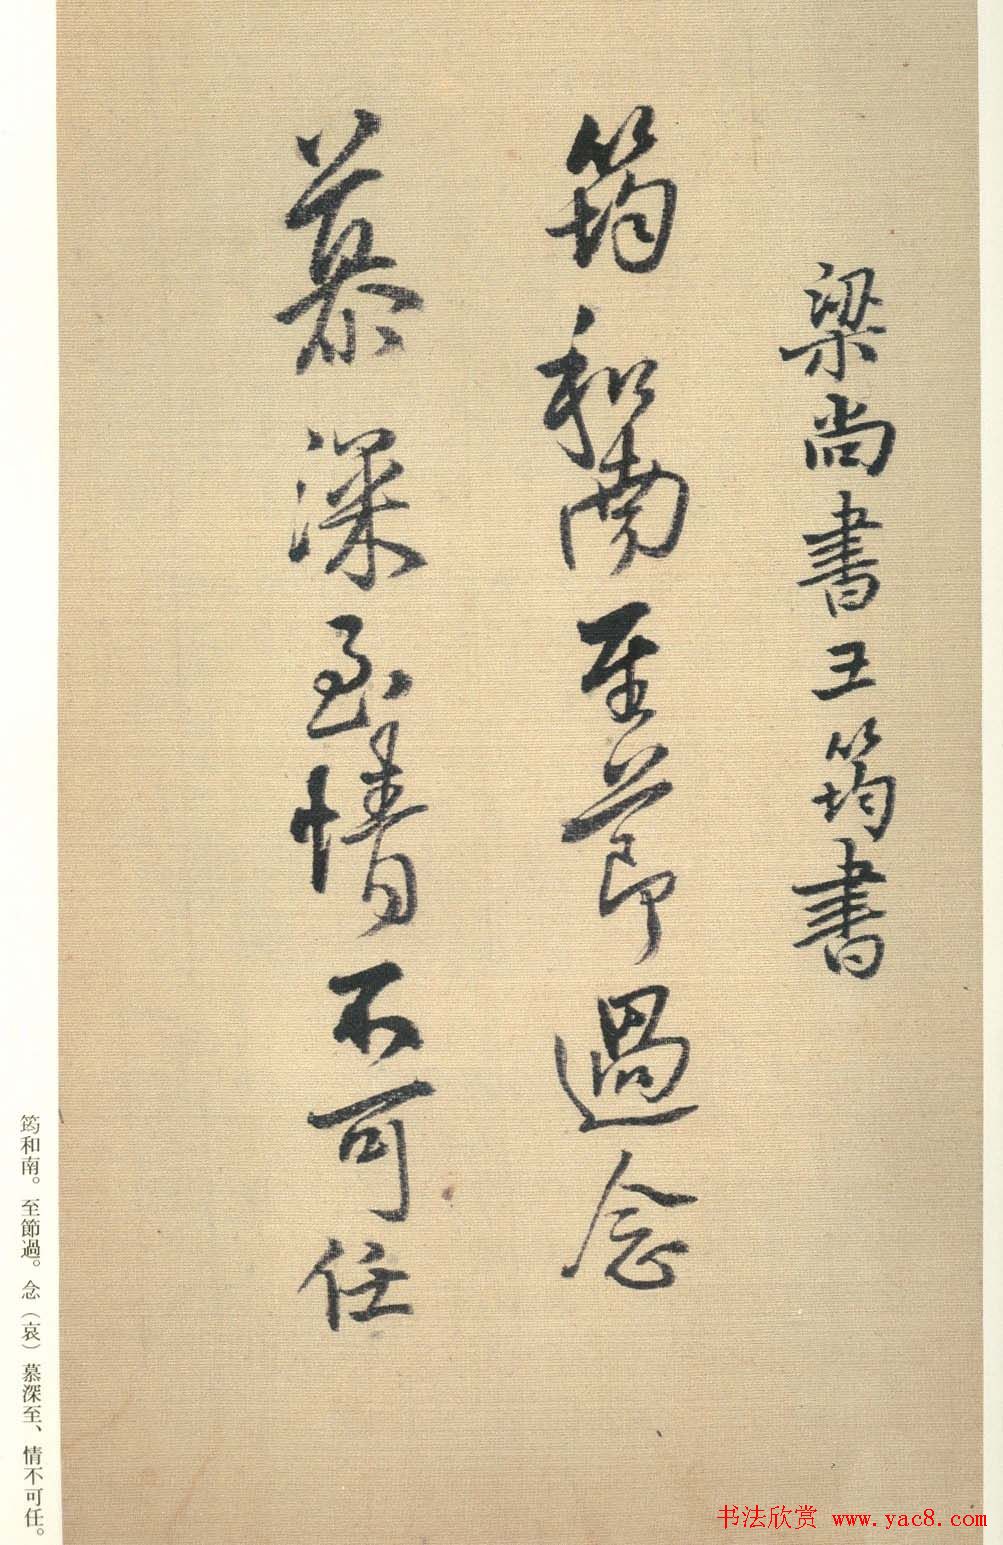 梁尚書王筠書
筠和南至節過念
慕深至情不可任
筠和南。至節過。念（哀）慕深至、情不可任。
书法欣赏 www.yac8.com